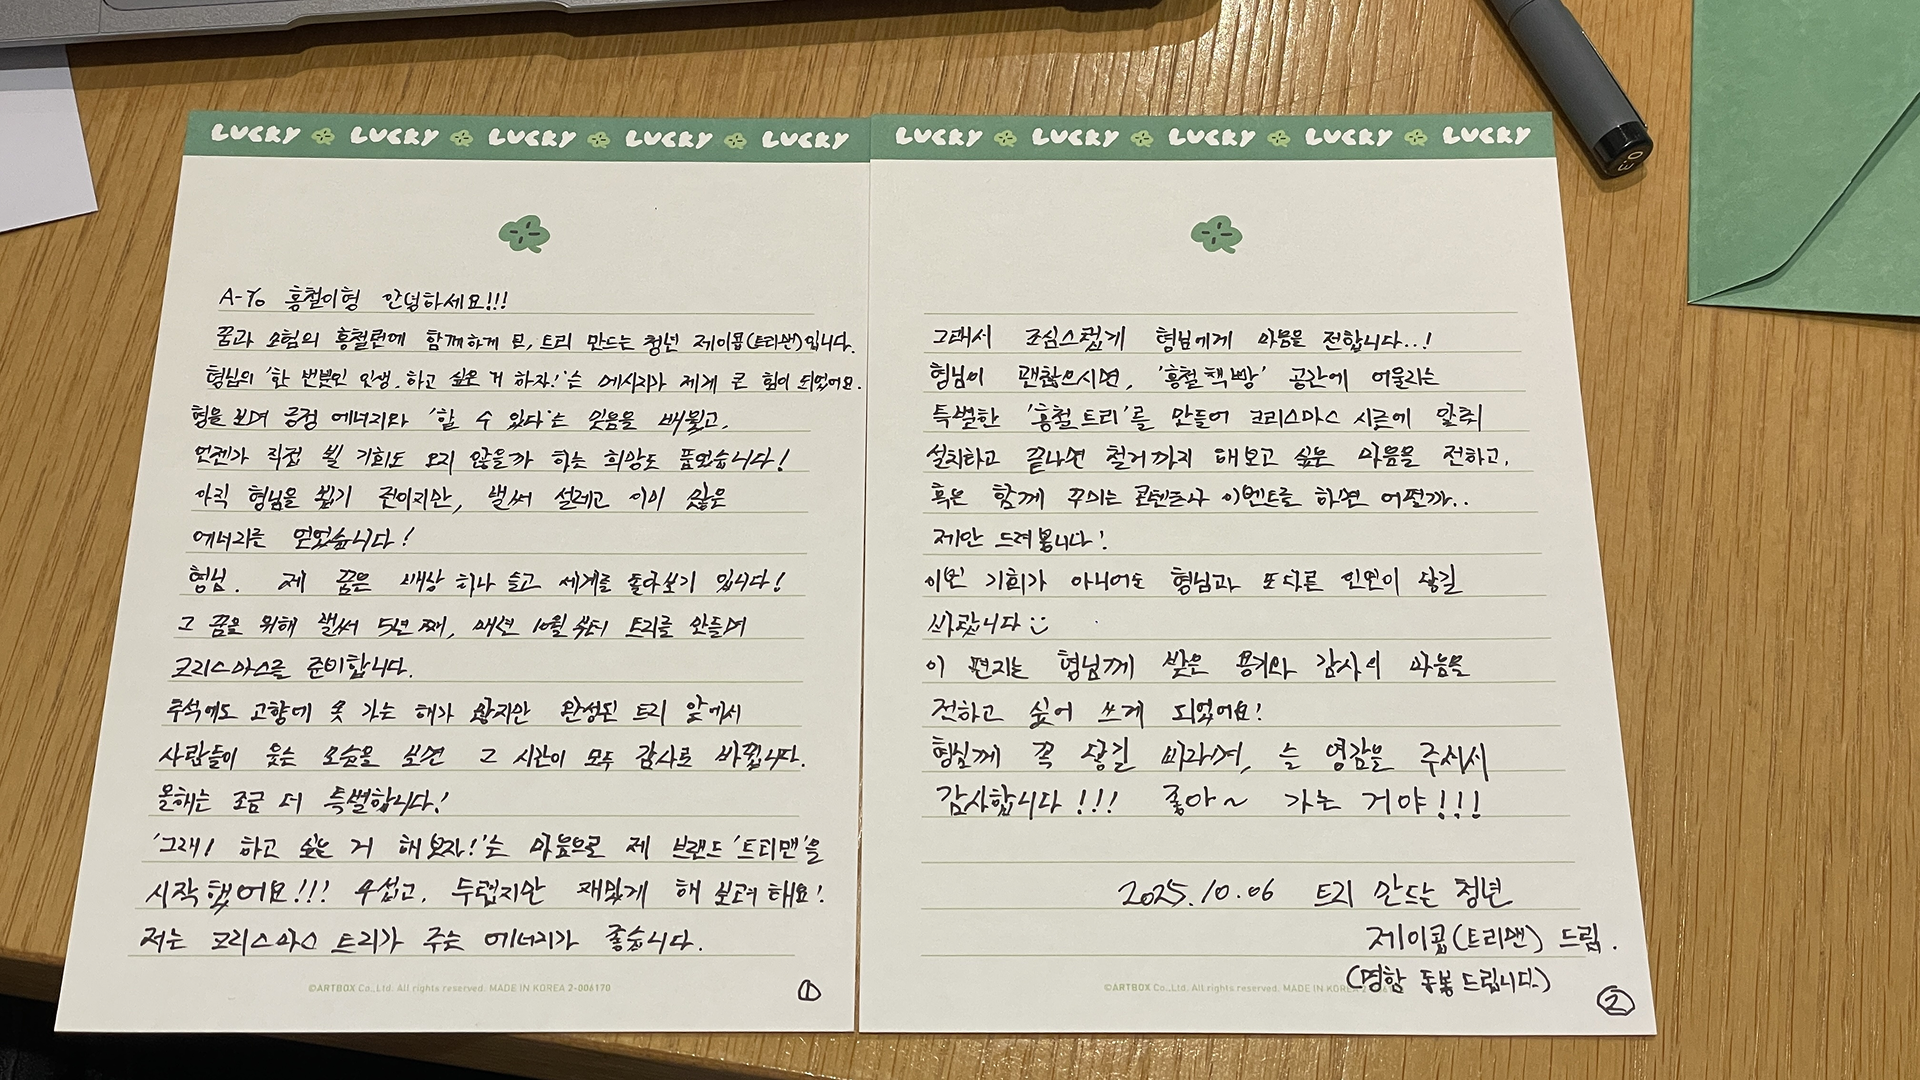 LUCKY LUCKY LUCKY LUCKY LUCKY
A-Yo 홍철이형 안녕하세요!!!
꿈과 모험의 홍철런에 함께하게 된, 트리 만드는 청년 제이콥(트리맨)입니다.
형님의 '한 번뿐인 인생, 하고 싶은 거 하자!'는 메시지가 제게 큰 힘이 되었어요.
형을 보며 긍정 에너지와 '할 수 있다'는 믿음을 배웠고,
언젠가 직접 뵐 기회도 오지 않을까 하는 희망도 품었습니다!
아직 형님을 뵙기 전이지만, 벌써 설레고 이미 많은
에너지를 얻었습니다!
형님. 제 꿈은 배낭 하나 들고 세계를 돌아보기 입니다!
그 꿈을 위해 벌써 5년째, 매년 10월부터 트리를 만들며
크리스마스를 준비합니다.
추석에도 고향에 못 가는 해가 많지만 완성된 트리 앞에서
사람들이 웃는 모습을 보면 그 시간이 모두 감사로 바뀝니다.
올해는 조금 더 특별합니다!
'그래! 하고 싶은 거 해보자!'는 마음으로 제 브랜드 '트리맨'을
시작했어요!!! 무섭고, 두렵지만 재밌게 해 보려 해요!
저는 크리스마스 트리가 주는 에너지가 좋습니다.
©ARTBOX Co.,Ltd. All rights reserved. MADE IN KOREA 2-006170
①
LUCKY LUCKY LUCKY LUCKY LUCKY
그래서 조심스럽게 형님에게 마음을 전합니다..!
형님이 괜찮으시면, '홍철책빵' 공간에 어울리는
특별한 '홍철트리'를 만들어 크리스마스 시즌에 맞춰
설치하고 끝나면 철거까지 해보고 싶은 마음을 전하고,
혹은 함께 꾸미는 콘텐츠나 이벤트를 하면 어떨까..
제안 드려봅니다!
이번 기회가 아니어도 형님과 또다른 인연이 닿길
바랍니다 :)
이 편지는 형님께 받은 용기와 감사의 마음을
전하고 싶어 쓰게 되었어요!
형님께 꼭 닿길 바라며, 늘 영감을 주셔서
감사합니다!!! 좋아~ 가는 거야!!!
2025.10.06 트리 만드는 청년
제이콥(트리맨) 드림.
(명함 동봉 드립니다.)
©ARTBOX Co.,Ltd. All rights reserved. MADE IN KOREA
②
0.3